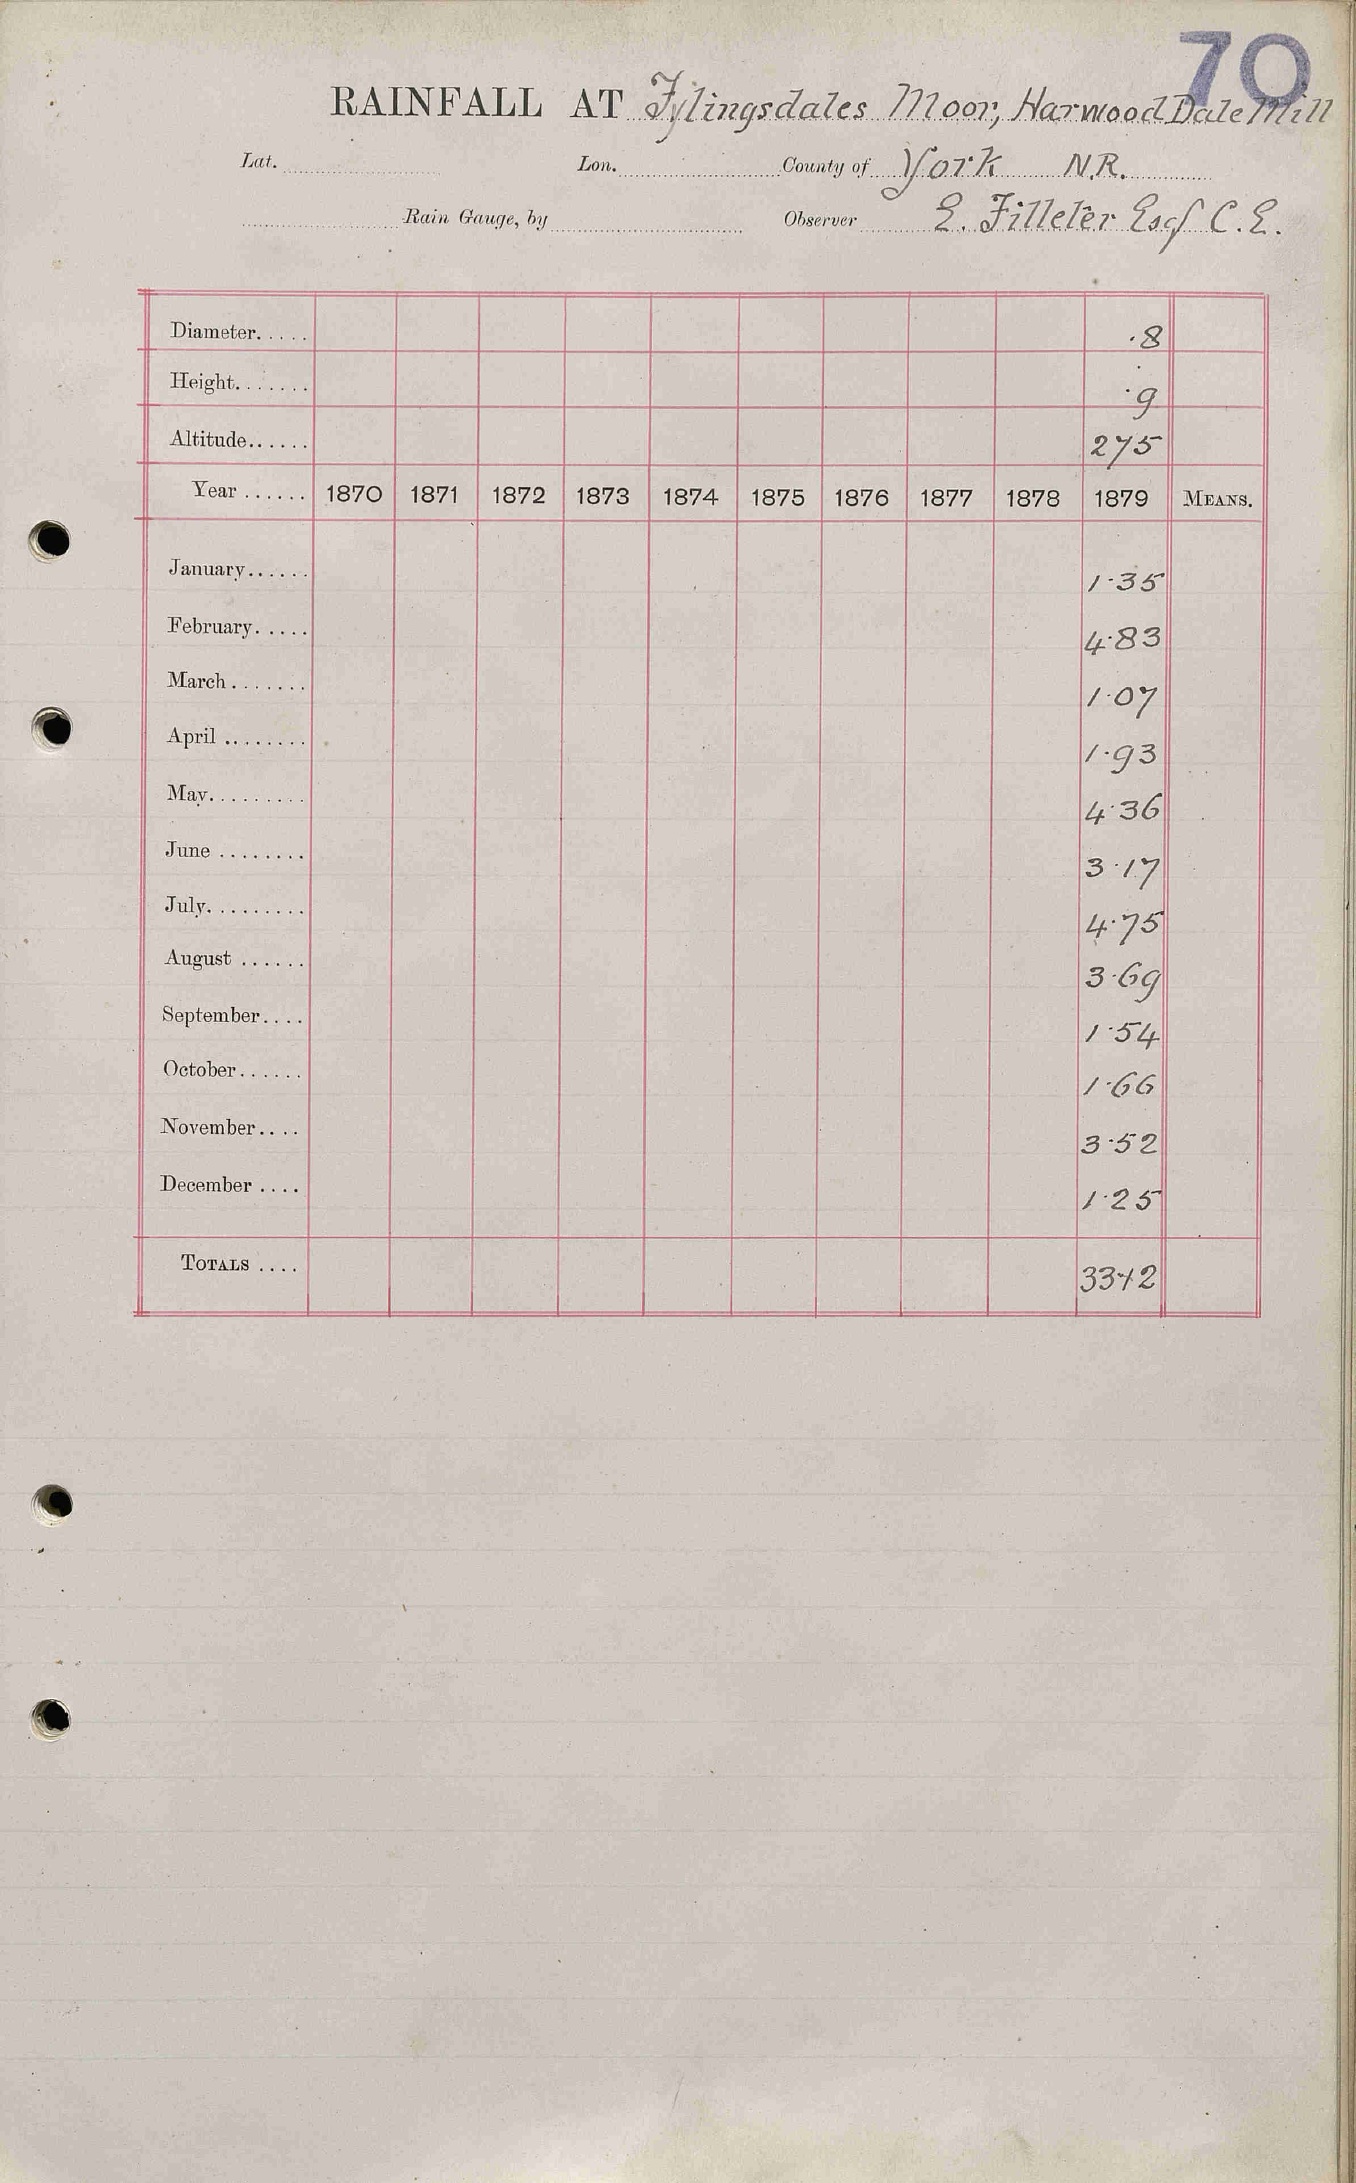 70
RAINFALL AT Fylingsdales Moor, Harwood Dale Mill
Lat. Lon. County of York N.R.
Rain Gauge, by Observer E. Filleter Esq C.E.
Diameter..... ·8
Height....... ·9
Altitude...... 275
Year ...... 1870 1871 1872 1873 1874 1875 1876 1877 1878 1879 MEANS.
January...... 1·35
February..... 4·83
March....... 1·07
April ........ 1·93
May......... 4·36
June ........ 3·17
July......... 4·75
August ...... 3·69
September.... 1·54
October...... 1·66
November.... 3·52
December .... 1·25
TOTALS .... 33·12